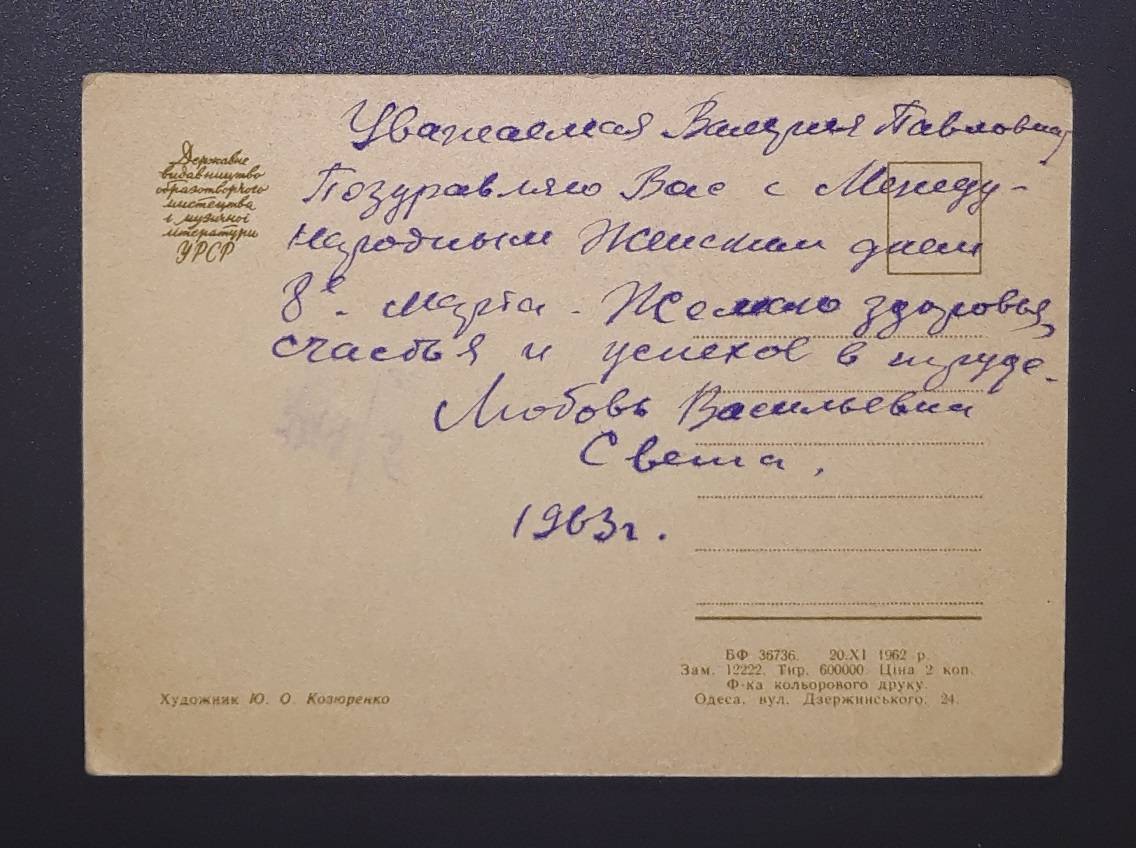 Державне
видавництво
образотворчого
мистецтва
і музичної
літератури
УРСР
Уважаемая Валерия Павловна
Поздравляю Вас с Между-
народным Женским днем
8е. марта. Желаю здоровья,
счастья и успехов в труде.
Любовь Васильевна
Света.
1963г.
БФ 36736. 20.XI 1962 р.
Зам. 12222. Тир. 600000. Ціна 2 коп.
Ф-ка кольорового друку.
Одеса, вул. Дзержинського, 24.
Художник Ю. О. Козюренко